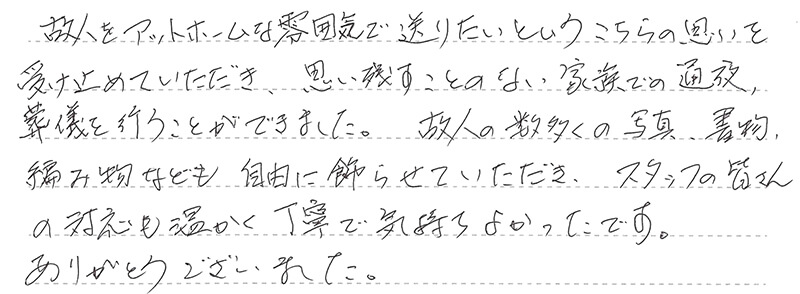 故人をアットホームな雰囲気で送りたいというこちらの思いを
受け止めていただき、思い残すことのない家族での通夜,
葬儀を行うことができました。 故人の数多くの写真、書物,
編み物なども自由に飾らせていただき、スタッフの皆さん
の対応も温かく丁寧で気持ちよかったです。
ありがとうございました。